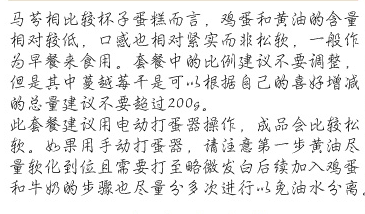 马芬相比较杯子蛋糕而言，鸡蛋和黄油的含量
相对较低，口感也相对紧实而非松软，一般作
为早餐来食用。套餐中的比例建议不要调整，
但是其中蔓越莓干是可以根据自己的喜好增减
的总量建议不要超过200g。
此套餐建议用电动打蛋器操作，成品会比较松
软。如果用手动打蛋器，请注意第一步黄油尽
量软化到位且需要打至略微发白后续加入鸡蛋
和牛奶的步骤也尽量分多次进行以免油水分离。